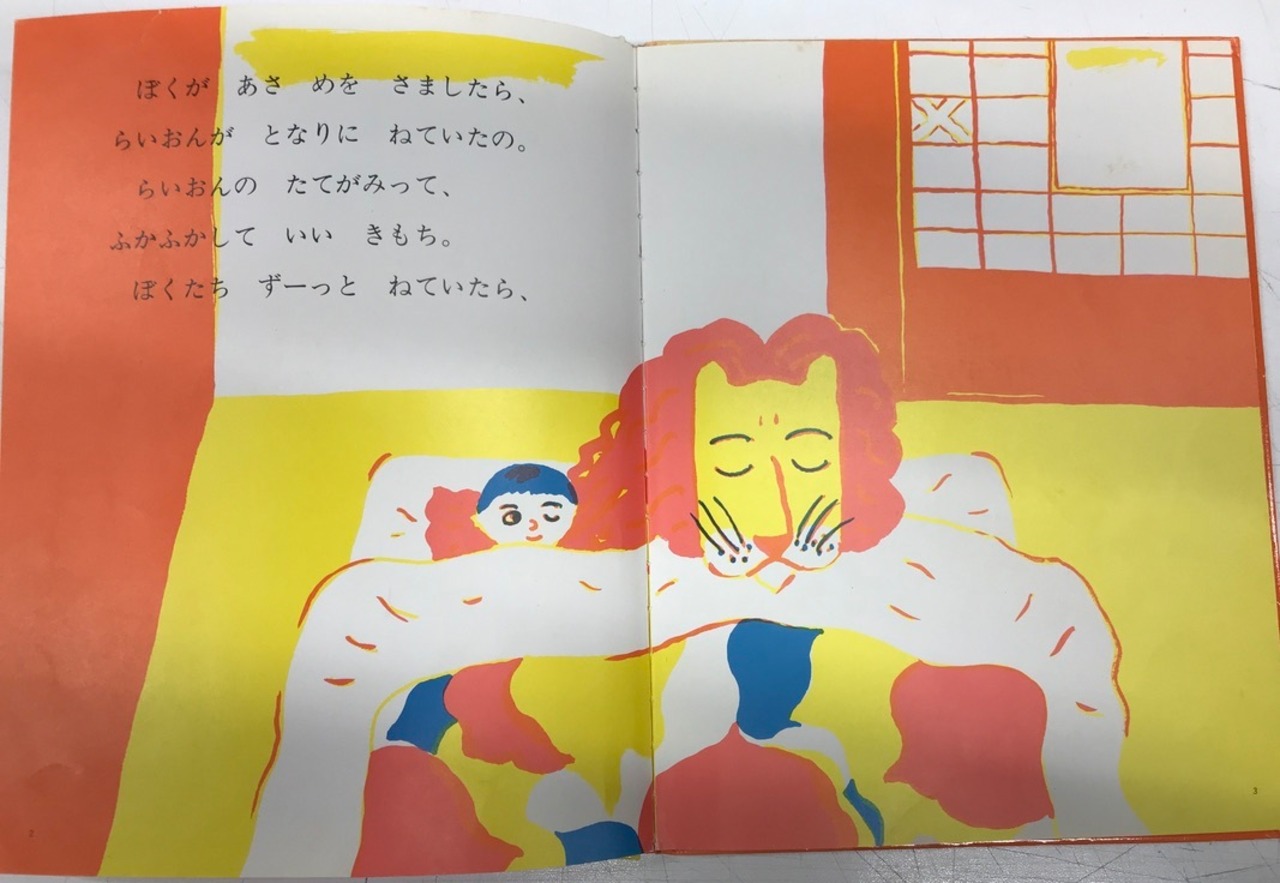 ぼくが　あさ　めを　さましたら、
らいおんが　となりに　ねていたの。
らいおんの　たてがみって、
ふかふかして　いい　きもち。
ぼくたち　ずーっと　ねていたら、
2
3